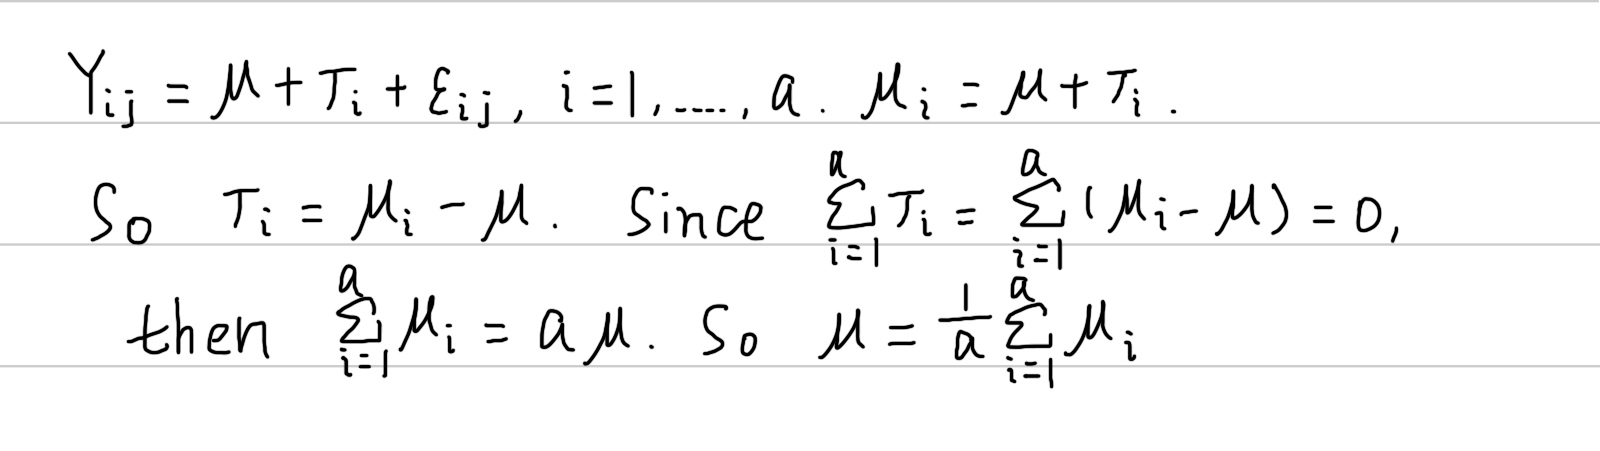 Y_{ij} = μ + τ_i + ε_{ij}, i=1,....., a. μ_i = μ + τ_i.
So τ_i = μ_i - μ. Since \sum_{i=1}^{a} τ_i = \sum_{i=1}^{a} (μ_i - μ) = 0,
then \sum_{i=1}^{a} μ_i = aμ. So μ = \frac{1}{a} \sum_{i=1}^{a} μ_i